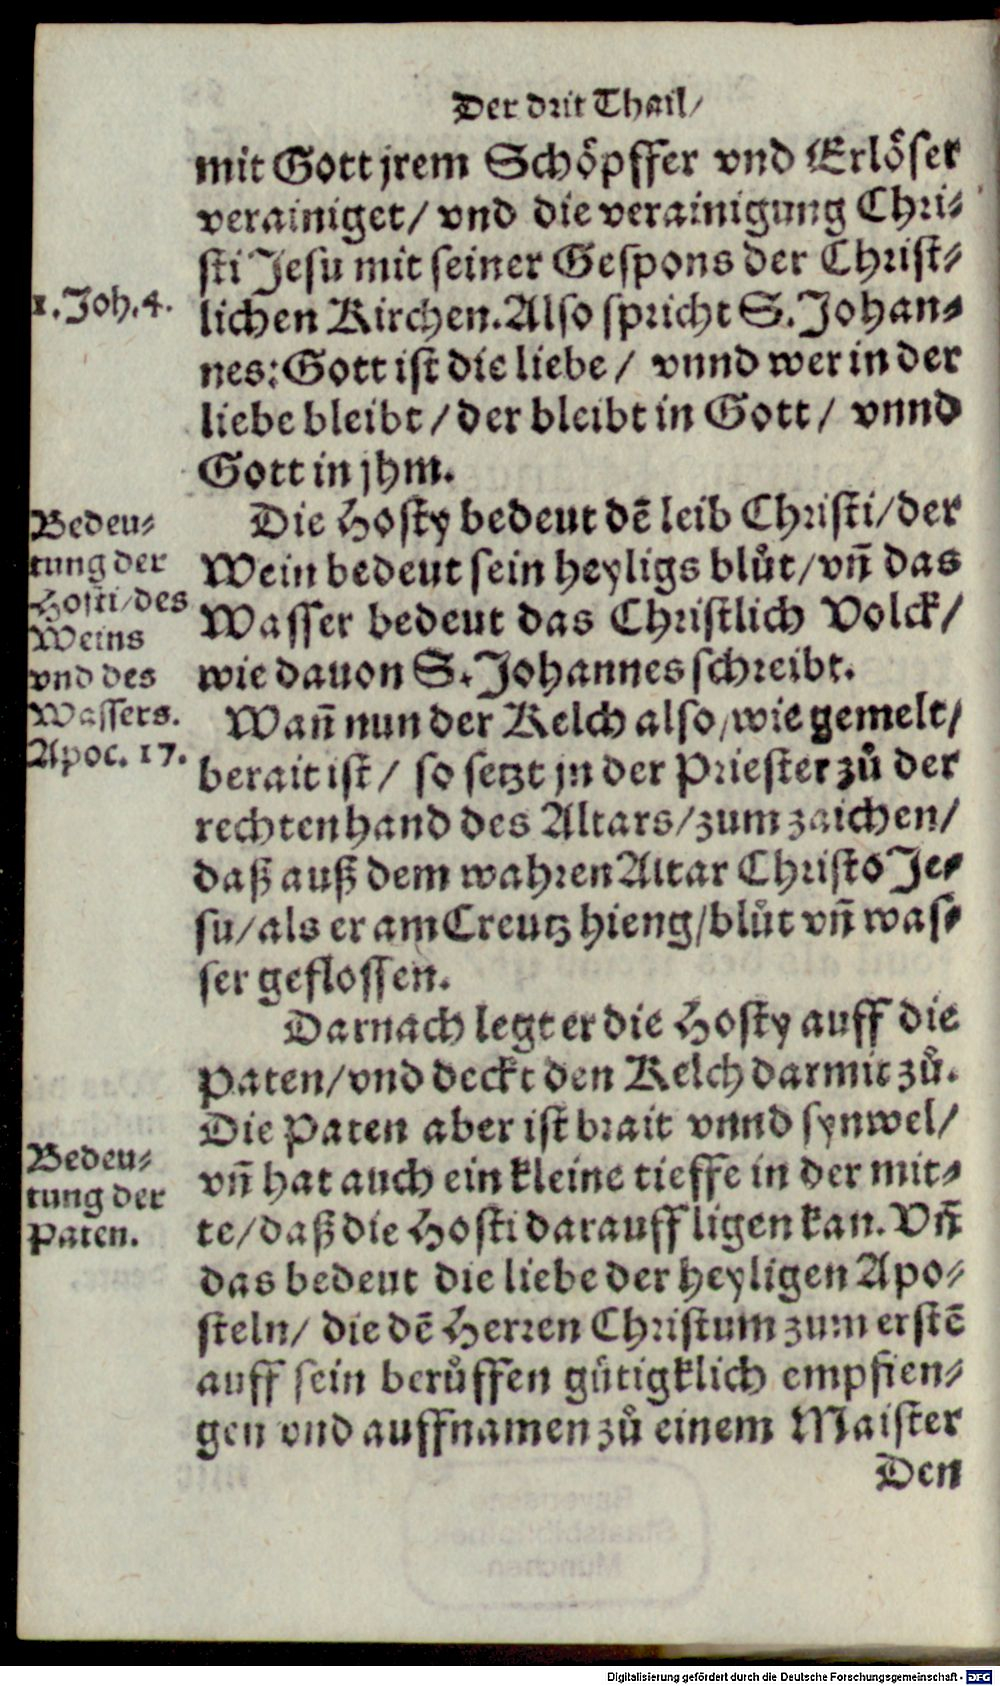 Der drit Thail/
mit Gott jrem Schöpffer vnd Erlöser
verainiget/ vnd die verainigung Chri-
sti Jesu mit seiner Gespons der Christ-
1. Joh. 4.
lichen Kirchen. Also spricht S. Johan-
nes: Gott ist die liebe/ vnnd wer in der
liebe bleibt/ der bleibt in Gott/ vnnd
Gott in jhm.
Bedeu-
tung der
Hosti/des
Weins
vnd des
Wassers.
Apoc. 17.
Die Hosty bedeut dē leib Christi/der
Wein bedeut sein heyligs blůt/vn̄ das
Wasser bedeut das Christlich Volck/
wie dauon S. Johannes schreibt.
Wann̄ nun der Kelch also/wie gemelt/
berait ist/ so setzt jn der Priester zů der
rechten hand des Altars/zum zaichen/
daß auß dem wahren Altar Christo Je-
su/als er am Creutz hieng/blůt vn̄ was-
ser geflossen.
Darnach legt er die Hosty auff die
Paten/vnd deckt den Kelch darmit zů.
Bedeu-
tung der
Paten.
Die Paten aber ist brait vnnd synwel/
vn̄ hat auch ein kleine tieffe in der mit-
te/daß die Hosti darauff ligen kan. Vn̄
das bedeut die liebe der heyligen Apo-
steln/ die dē Herren Christum zum erstē
auff sein berůffen gütigklich empfien-
gen vnd auffnamen zů einem Maister
Den
Digitalisierung gefördert durch die Deutsche Forschungsgemeinschaft - DFG